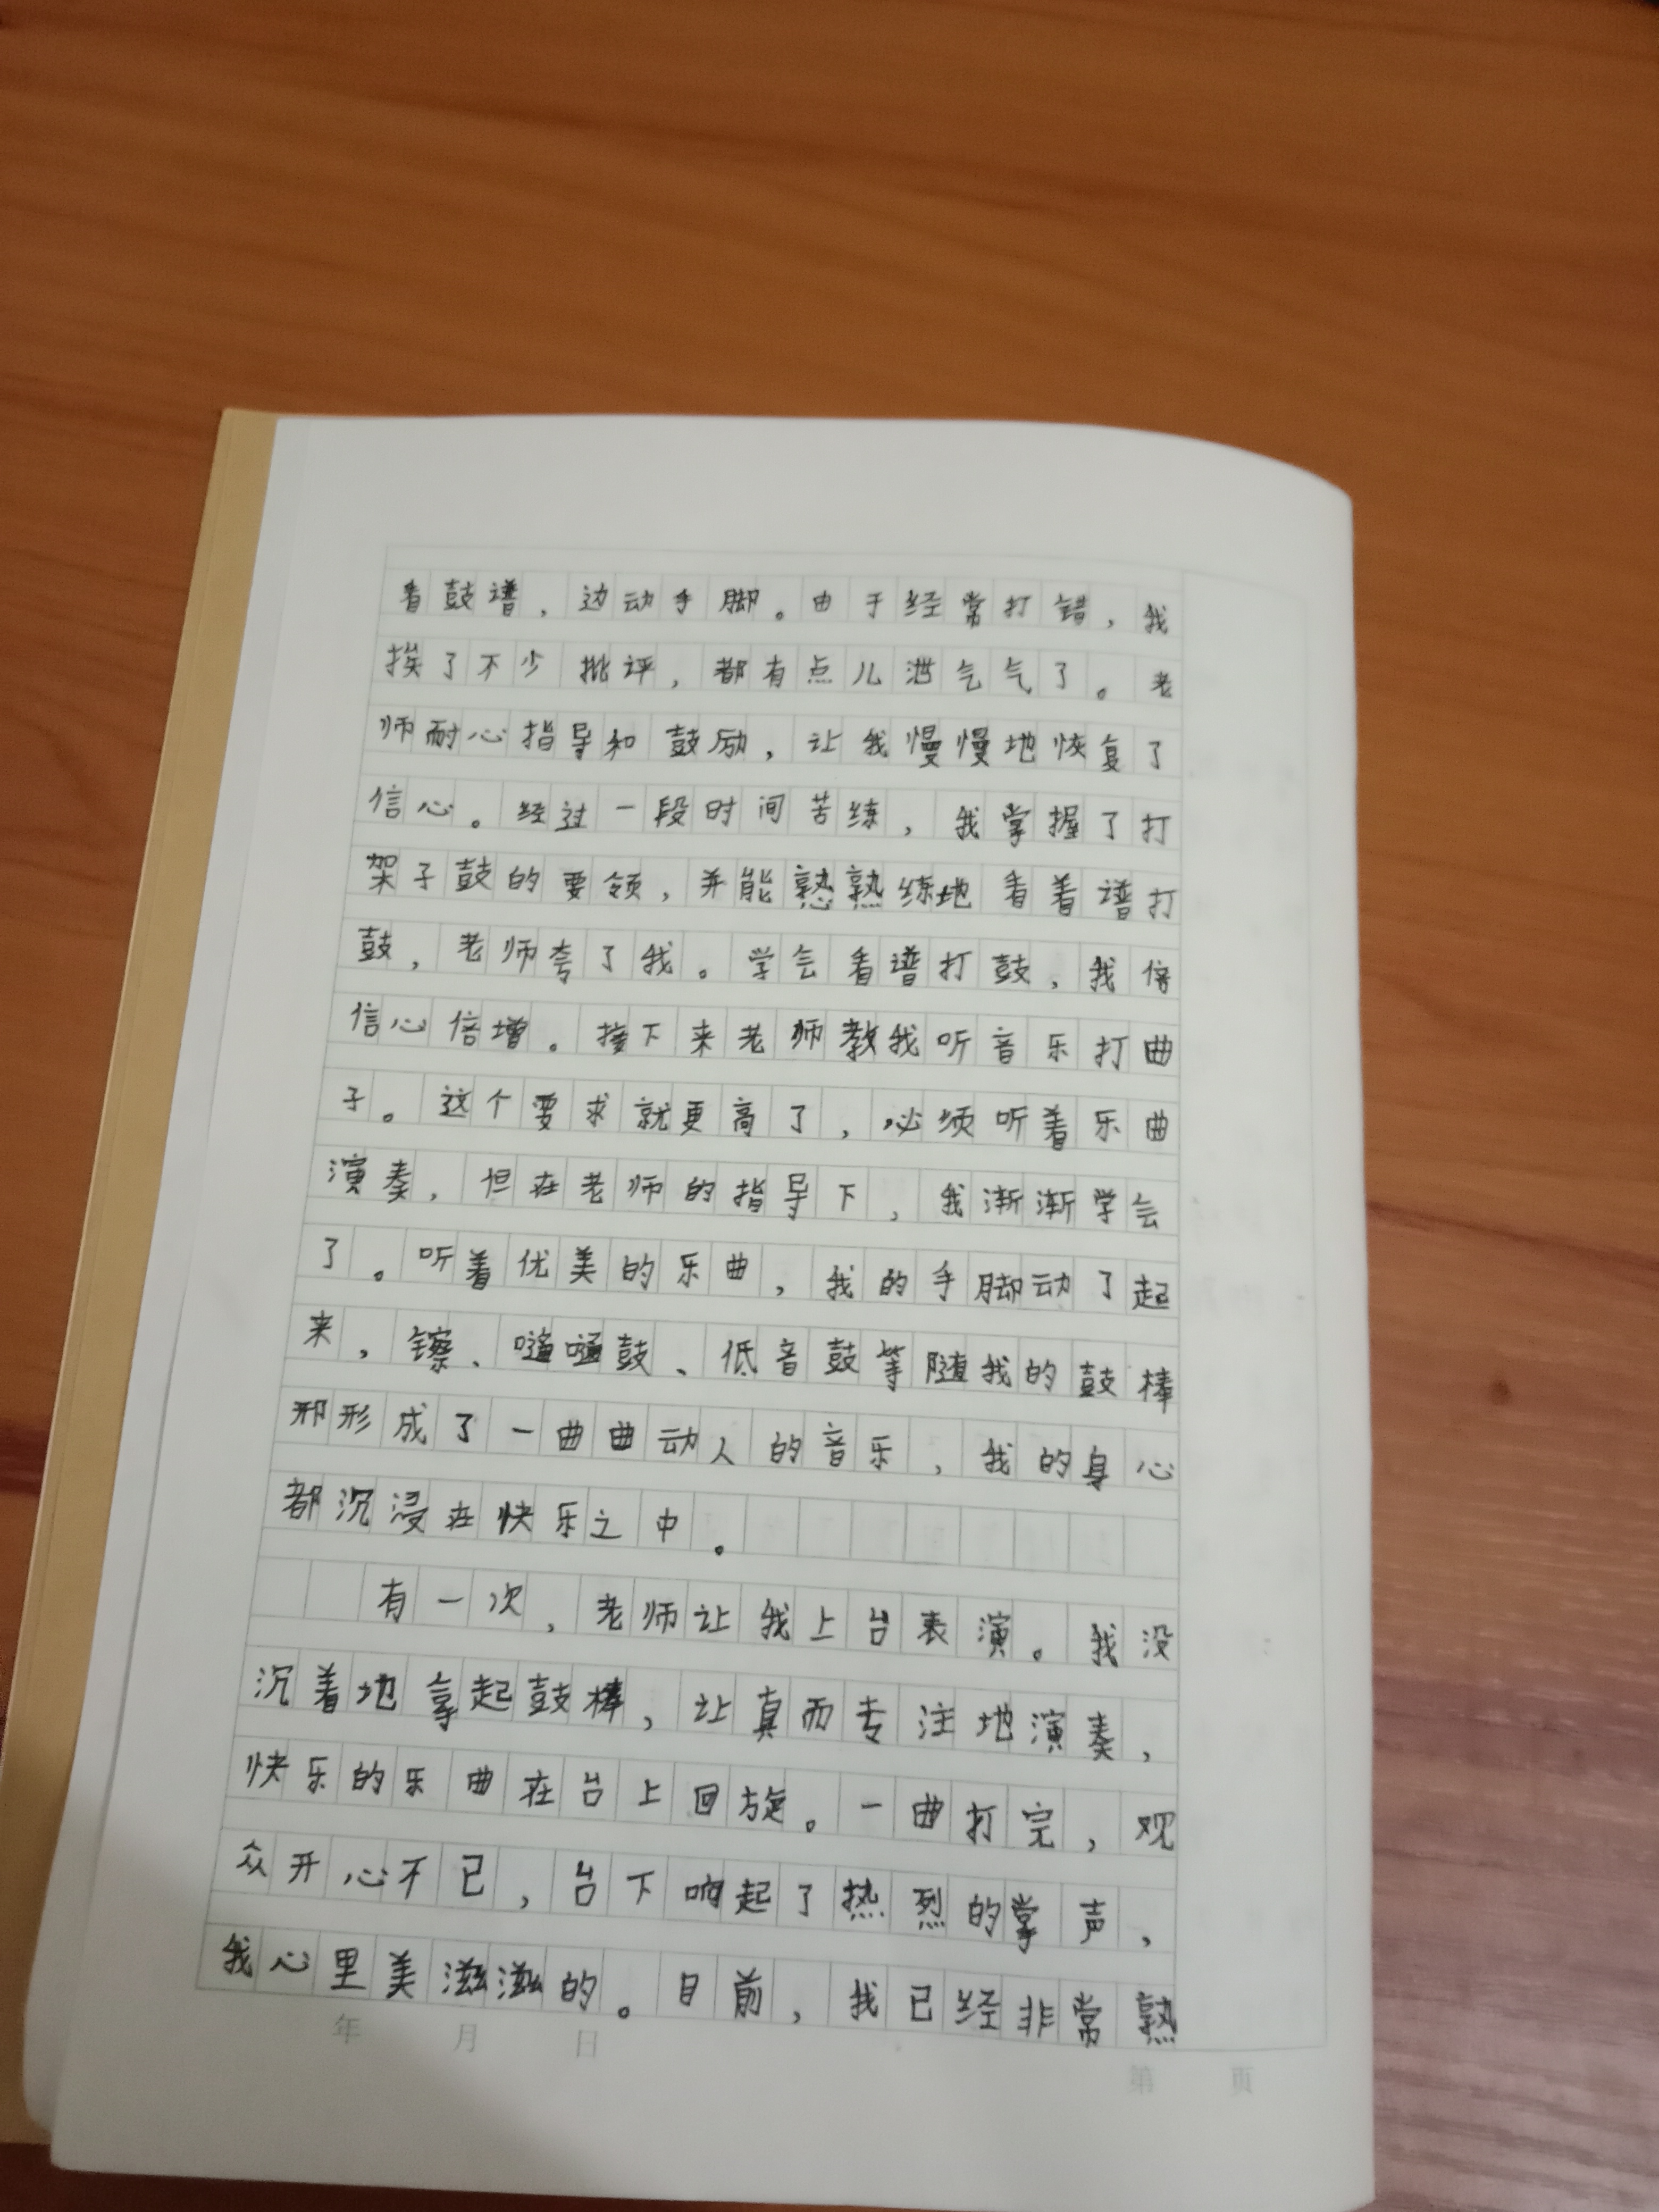 看鼓谱，边动手脚。由于经常打错，我
挨了不少批评，都有点儿泄气气了。老
师耐心指导和鼓励，让我慢慢地恢复了
信心。经过一段时间苦练，我掌握了打
架子鼓的要领，并能熟熟练地看着谱打
鼓，老师夸了我。学会看谱打鼓，我倍
信心倍增。接下来老师教我听音乐打曲
子。这个要求就更高了，必须听着乐曲
演奏，但在老师的指导下，我渐渐学会
了。听着优美的乐曲，我的手脚动了起
来，镲、嗵嗵鼓、低音鼓等随我的鼓棒
形成了一曲曲动人的音乐，我的身心
都沉浸在快乐之中。
有一次，老师让我上台表演。我没
沉着地拿起鼓棒，让真而专注地演奏，
快乐的乐曲在台上回旋。一曲打完，观
众开心不已，台下响起了热烈的掌声，
我心里美滋滋的。目前，我已经非常熟
年 月 日
第 页